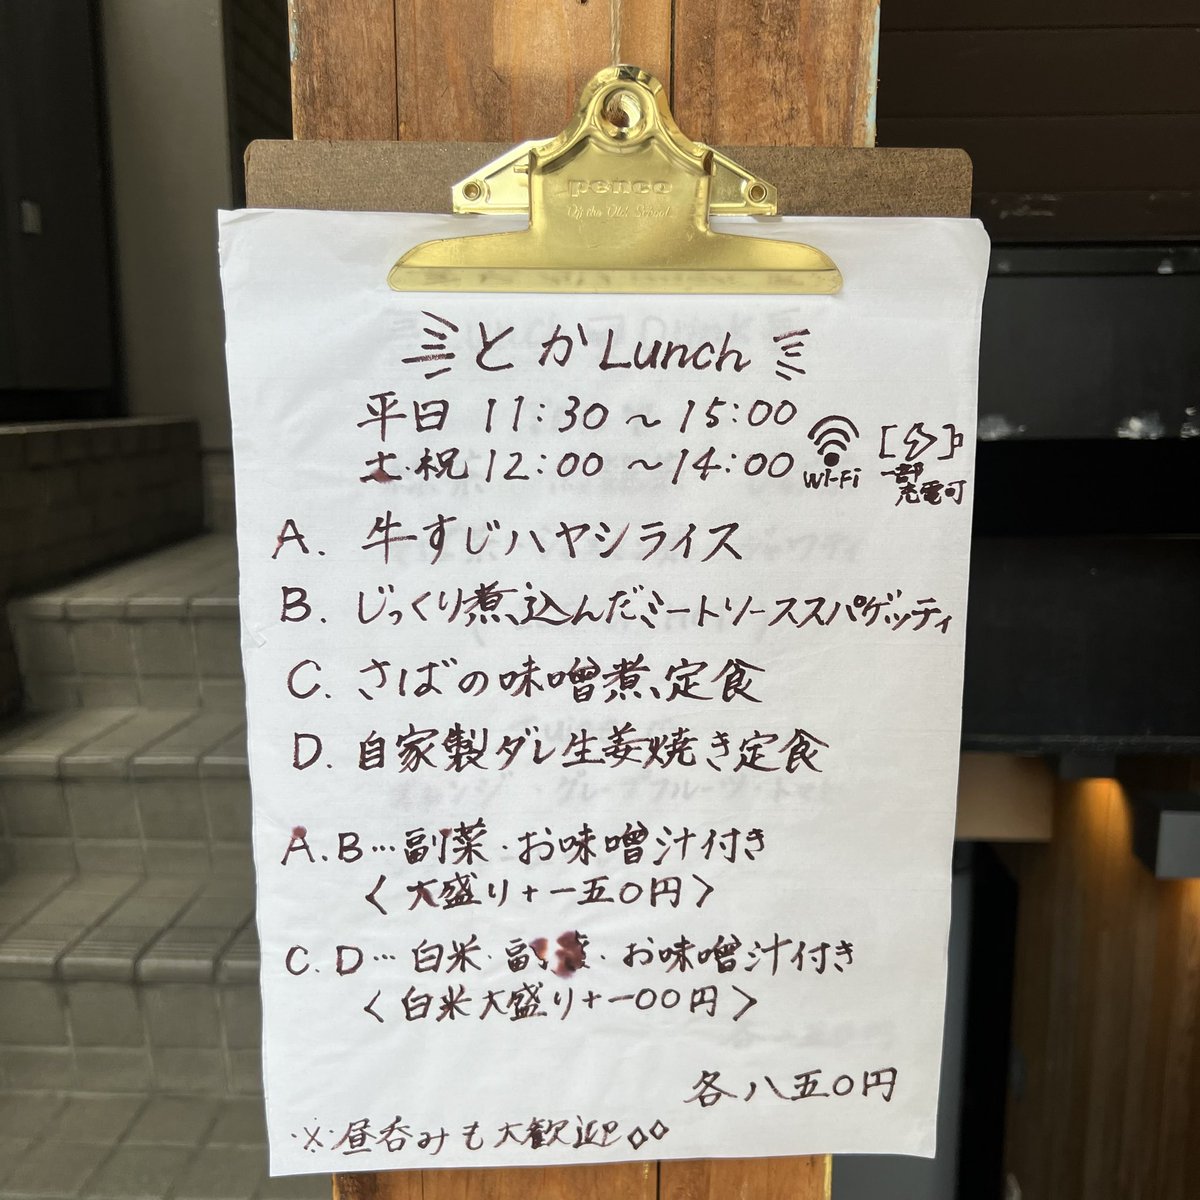 penco
Off the Old School
とかLunch
平日 11:30〜15:00
土・祝 12:00〜14:00
Wi-Fi
一部
充電可
A. 牛すじハヤシライス
B. じっくり煮込んだミートソーススパゲッティ
C. さばの味噌煮定食
D. 自家製ダレ生姜焼き定食
A.B…副菜・お味噌汁付き
〈大盛り+一五〇円〉
C.D…白米・副菜・お味噌汁付き
〈白米大盛り+一〇〇円〉
各八五〇円
※昼呑みも大歓迎◇◇